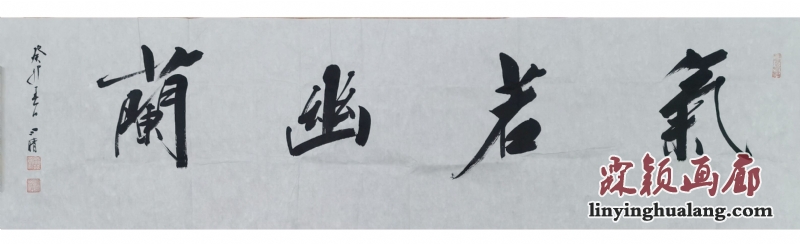 氣若幽蘭
癸卯
霖颖画廊
linyinghualang.com